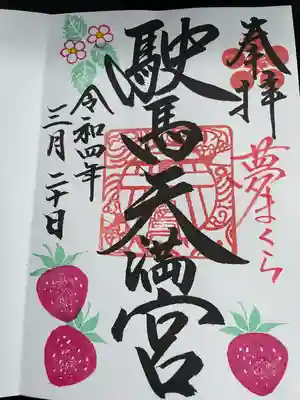 奉拝
夢まくら
駛馬天満宮
令和四年
三月二十日